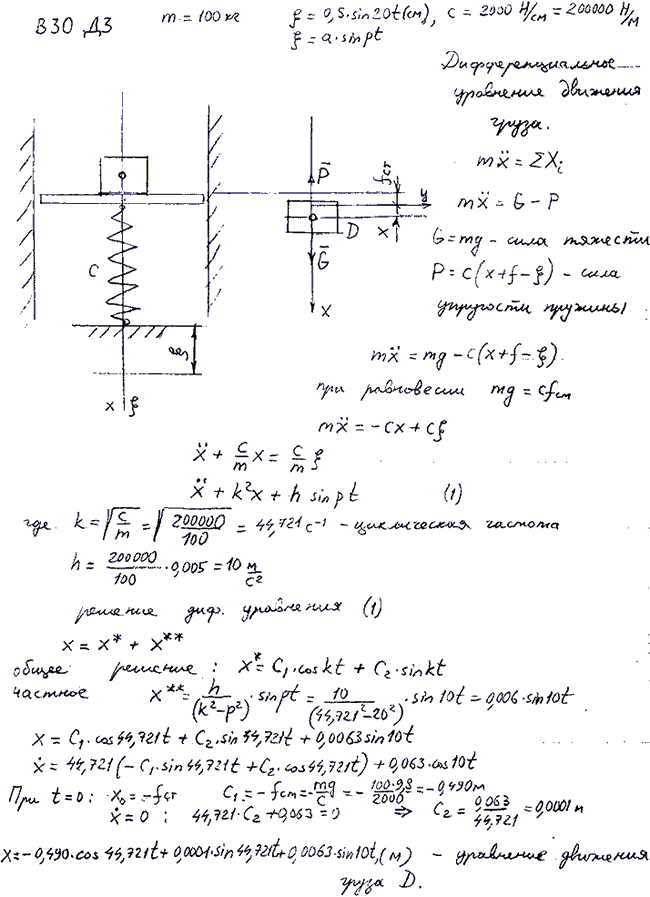 В30 Д3 m = 100 кг ξ = 0,5·sin20t (см), c = 2000 Н/см = 200000 Н/м
ξ = a·sinpt
Дифференциальное
уравнение движения
груза.
mẍ = ΣXᵢ
mẍ = G - P
G = mg - сила тяжести
P = c(x+f-ξ) - сила
упругости пружины
P̄
fст
y
D
x
Ḡ
x
C
ξ
x ξ
mẍ = mg - c(x+f-ξ).
при равновесии mg = cfсм
mẍ = -cx + cξ
ẍ + c/m x = c/m ξ
ẍ + k²x + h sinpt (1)
где k = √(c/m) = √(200000/100) = 44,721 с⁻¹ - циклическая частота
h = 200000/100 · 0,005 = 10 м/с²
решение диф. уравнения (1)
x = x* + x**
общее решение: x* = C₁·coskt + C₂·sinkt
частное x** = h/(k²-p²) · sinpt = 10/(44,721²-20²) · sin10t = 0,006·sin10t
x = C₁·cos44,721t + C₂·sin44,721t + 0,0063sin10t
ẋ = 44,721(-C₁·sin44,721t + C₂·cos44,721t) + 0,063·cos10t
При t=0: x₀ = -fст C₁ = -fсм = -mg/c = -100·9,8/2000 = -0,490м
ẋ = 0 ; 44,721·C₂ + 0,063 = 0 ⇒ C₂ = 0,063/44,721 = 0,0001 м
x = -0,490·cos44,721t + 0,0001·sin44,721t + 0,0063·sin10t, (м) - уравнение движения
груза D.